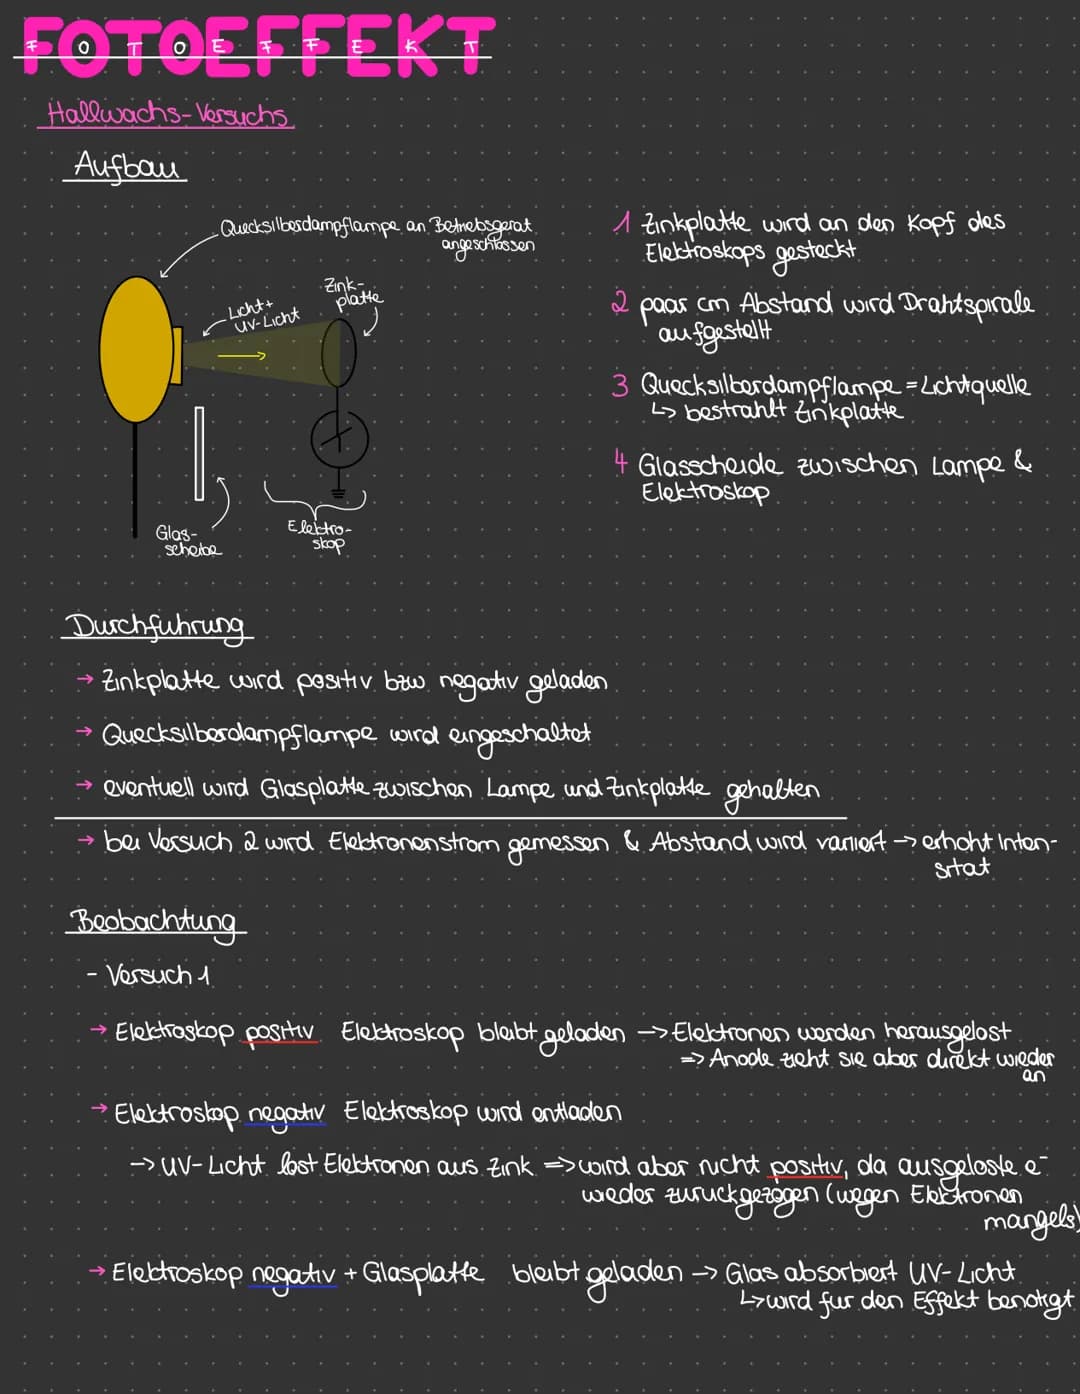 FOTOEFFEKT
Hallwachs-Versuchs
Aufbau
Quecksilberdampflampe an Betriebsgerät
angeschlossen
Licht+
UV-Licht
Zink-
platte
Glas-
scheibe
Elektro-
skop
1 Zinkplatte wird an den Kopf des
Elektroskops gesteckt
2 paar cm Abstand wird Drahtspirale
aufgestellt
3 Quecksilberdampflampe = Lichtquelle
↳ bestrahlt Zinkplatte
4 Glasscheide zwischen Lampe &
Elektroskop
Durchführung
→ Zinkplatte wird positiv bzw negativ geladen
→ Quecksilberdampflampe wird eingeschaltet
→ eventuell wird Glasplatte zwischen Lampe und Zinkplatte gehalten
→ bei Versuch 2 wird Elektronenstrom gemessen & Abstand wird variiert → erhöht Inten-
sität
Beobachtung
- Versuch 1
→ Elektroskop positiv Elektroskop bleibt geladen → Elektronen werden herausgelöst
=> Anode zieht sie aber direkt wieder
an
→ Elektroskop negativ Elektroskop wird entladen
→ UV-Licht löst Elektronen aus Zink => wird aber nicht positiv, da ausgelöste e⁻
wieder zurückgezogen (wegen Elektronen
mangels)
→ Elektroskop negativ + Glasplatte bleibt geladen → Glas absorbiert UV-Licht
↳ wird für den Effekt benötigt